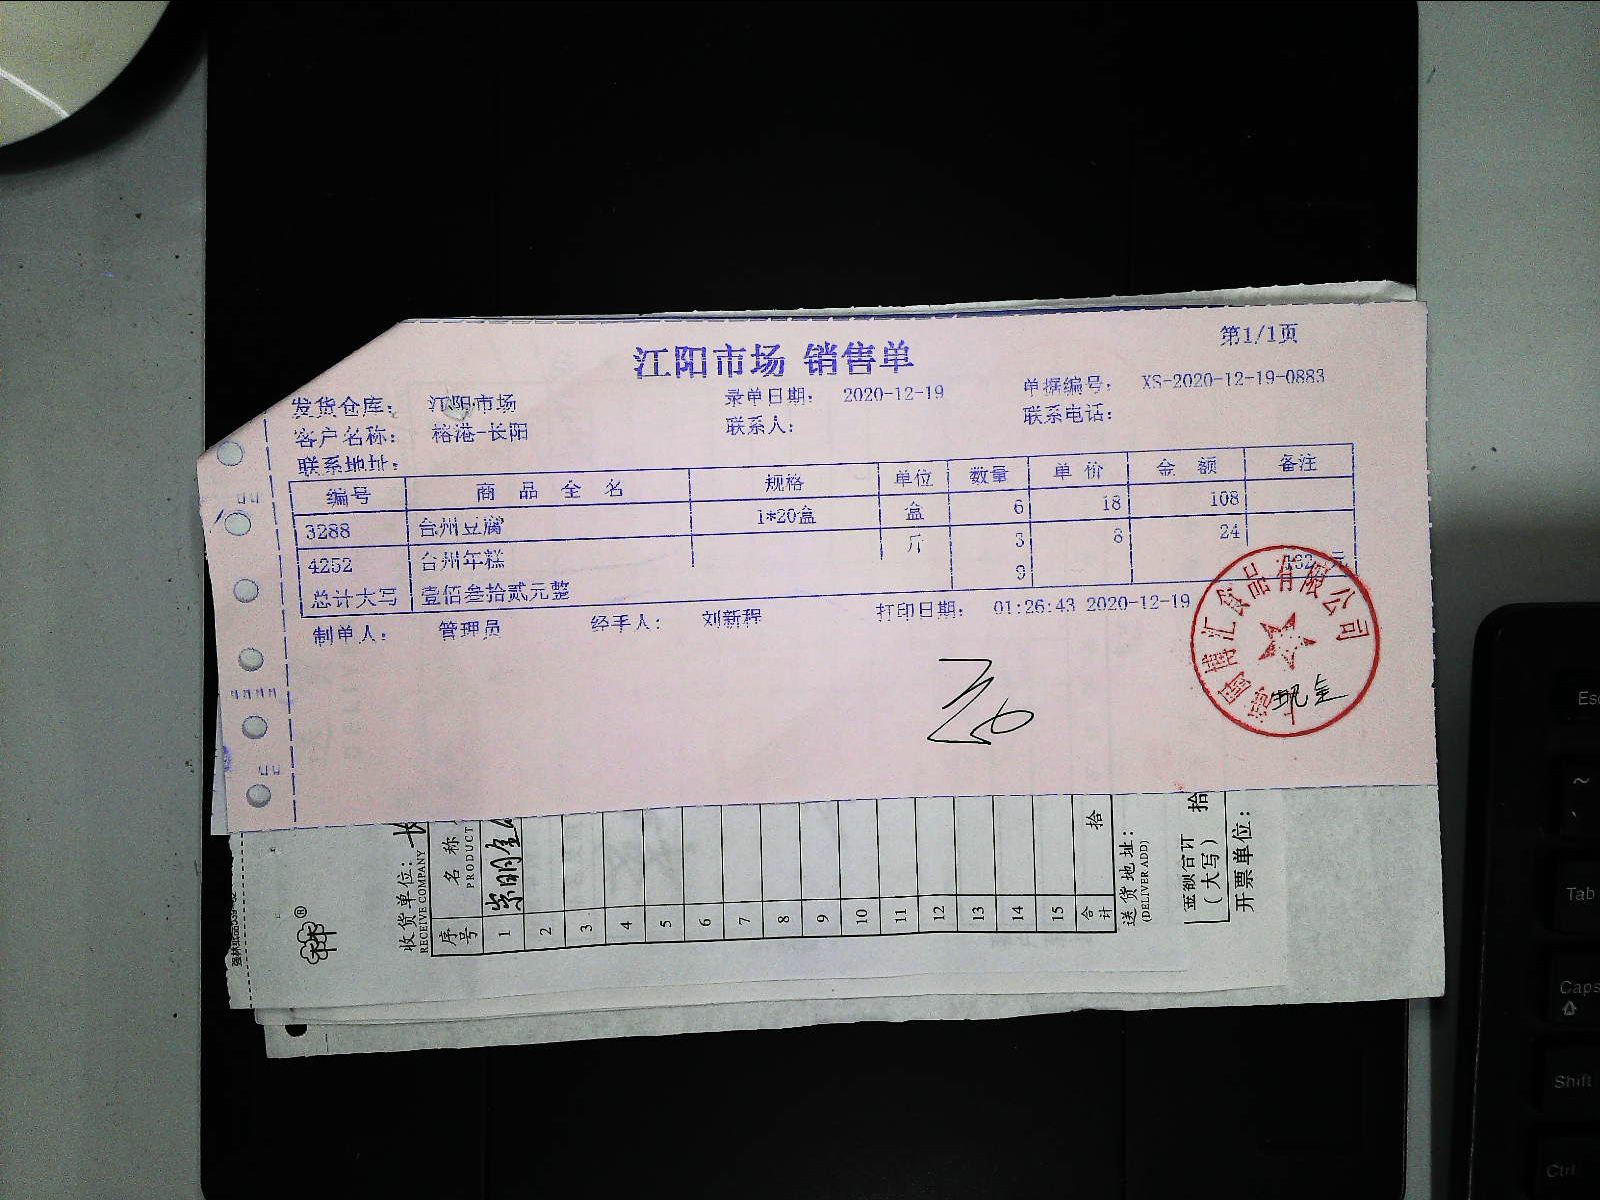 第1/1页
江阳市场 销售单
发货仓库： 江阳市场 录单日期： 2020-12-19 单据编号： XS-2020-12-19-0883
客户名称： 榕港-长阳 联系人： 联系电话：
联系地址：
编号 商品全名 规格 单位 数量 单价 金额 备注
3288 台州豆腐 1*20盒 盒 6 18 108
4252 台州年糕 斤 3 8 24
总计大写 壹佰叁拾贰元整 9 132 元
制单人： 管理员 经手人： 刘新程 打印日期： 01:26:43 2020-12-19
博汇食品有限公司
现金
收货单位：
RECEIVE COMPANY
序号 名称
PRODUCT
1 崇明
2
3
4
5
6
7
8
9
10
11
12
13
14
15
合计 拾
送货地址：
(DELIVER ADD)
金额合计 拾
（大写）
开票单位：
Esc
~
Tab
Caps
Shift
Ctrl